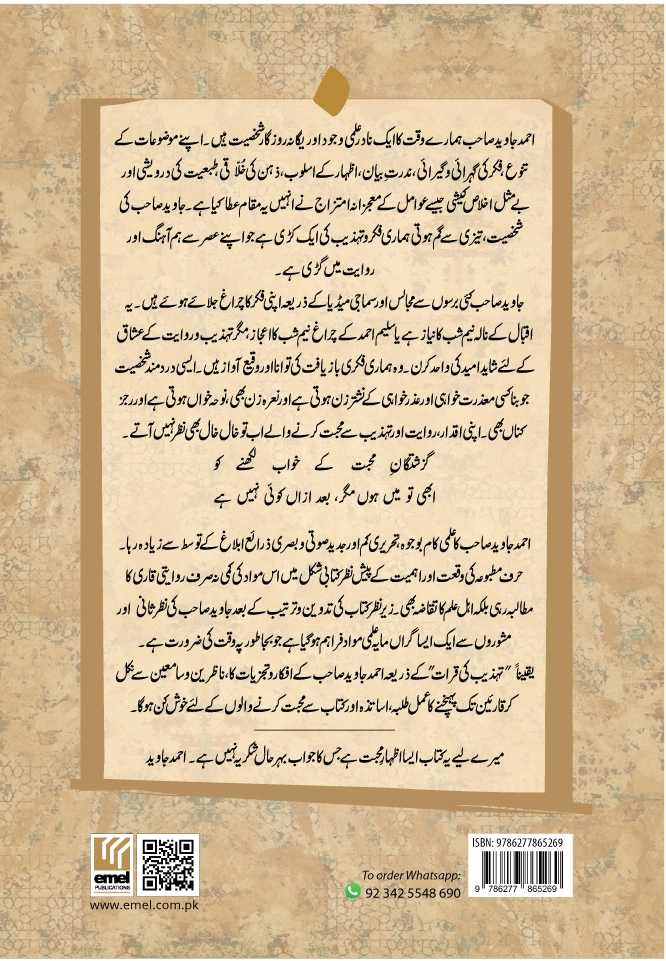 احمد جاوید صاحب ہمارے وقت کا ایک نادر علمی وجود اور یگانہ روزگار شخصیت ہیں۔ اپنے موضوعات کے
تنوع، فکر کی گہرائی و گیرائی، ندرتِ بیان، اظہار کے اسلوب، ذہن کی خلّاقی، طبیعت کی درویشی اور
بے مثل اخلاص کیشی جیسے عوامل کے معجزانہ امتزاج نے انہیں یہ مقام عطا کیا ہے۔ جاوید صاحب کی
شخصیت، تیزی سے گم ہوتی ہماری فکر و تہذیب کی ایک کڑی ہے جو اپنے عصر سے ہم آہنگ اور
روایت میں گڑی ہے۔
جاوید صاحب کئی برسوں سے مجالس اور سماجی میڈیا کے ذریعہ اپنی فکر کا چراغ جلائے ہوئے ہیں۔ یہ
اقبال کے نالہ نیم شب کا نیاز ہے یا سلیم احمد کے چراغ نیم شب کا اعجاز، مگر تہذیب و روایت کے عشاق
کے لئے شاید امید کی واحد کرن۔ وہ ہماری فکری بازیافت کی توانا اور وقیع آواز ہیں۔ ایسی دردمند شخصیت
جو بنا کسی معذرت خواہی اور عذر خواہی کے نشتر زن ہوتی ہے اور نعرہ زن بھی، نوحہ خواں ہوتی ہے اور رجز
کناں بھی۔ اپنی اقدار، روایت اور تہذیب سے محبت کرنے والے اب تو خال خال بھی نظر نہیں آتے۔
گزشتگانِ محبت کے خواب لکھنے کو
ابھی تو میں ہوں مگر، بعد ازاں کوئی نہیں ہے
احمد جاوید صاحب کا علمی کام بوجوہ، تحریری کم اور جدید صوتی و بصری ذرائع ابلاغ کے توسط سے زیادہ رہا۔
حرف مطبوعہ کی وقعت اور اہمیت کے پیش نظر کتابی شکل میں اس مواد کی کمی نہ صرف روایتی قاری کا
مطالبہ رہی بلکہ اہل علم کا تقاضہ بھی۔ زیر نظر کتاب کی تدوین و ترتیب کے بعد جاوید صاحب کی نظر ثانی اور
مشوروں سے ایک ایسا گراں مایہ علمی مواد فراہم ہو گیا ہے جو بجا طور پہ وقت کی ضرورت ہے۔
یقیناً "تہذیب کی قرات" کے ذریعہ احمد جاوید صاحب کے افکار و تجزیات کا، ناظرین و سامعین سے نکل
کر قارئین تک پہنچنے کا عمل طلبہ، اساتذہ اور کتاب سے محبت کرنے والوں کے لئے خوش کن ہوگا۔
میرے لیے یہ کتاب ایسا اظہارِ محبت ہے جس کا جواب بہرحال شکریہ نہیں ہے۔ احمد جاوید
ISBN: 9786277865269
9 786277 865269
To order Whatsapp:
92 342 5548 690
emel
PUBLICATIONS
www.emel.com.pk